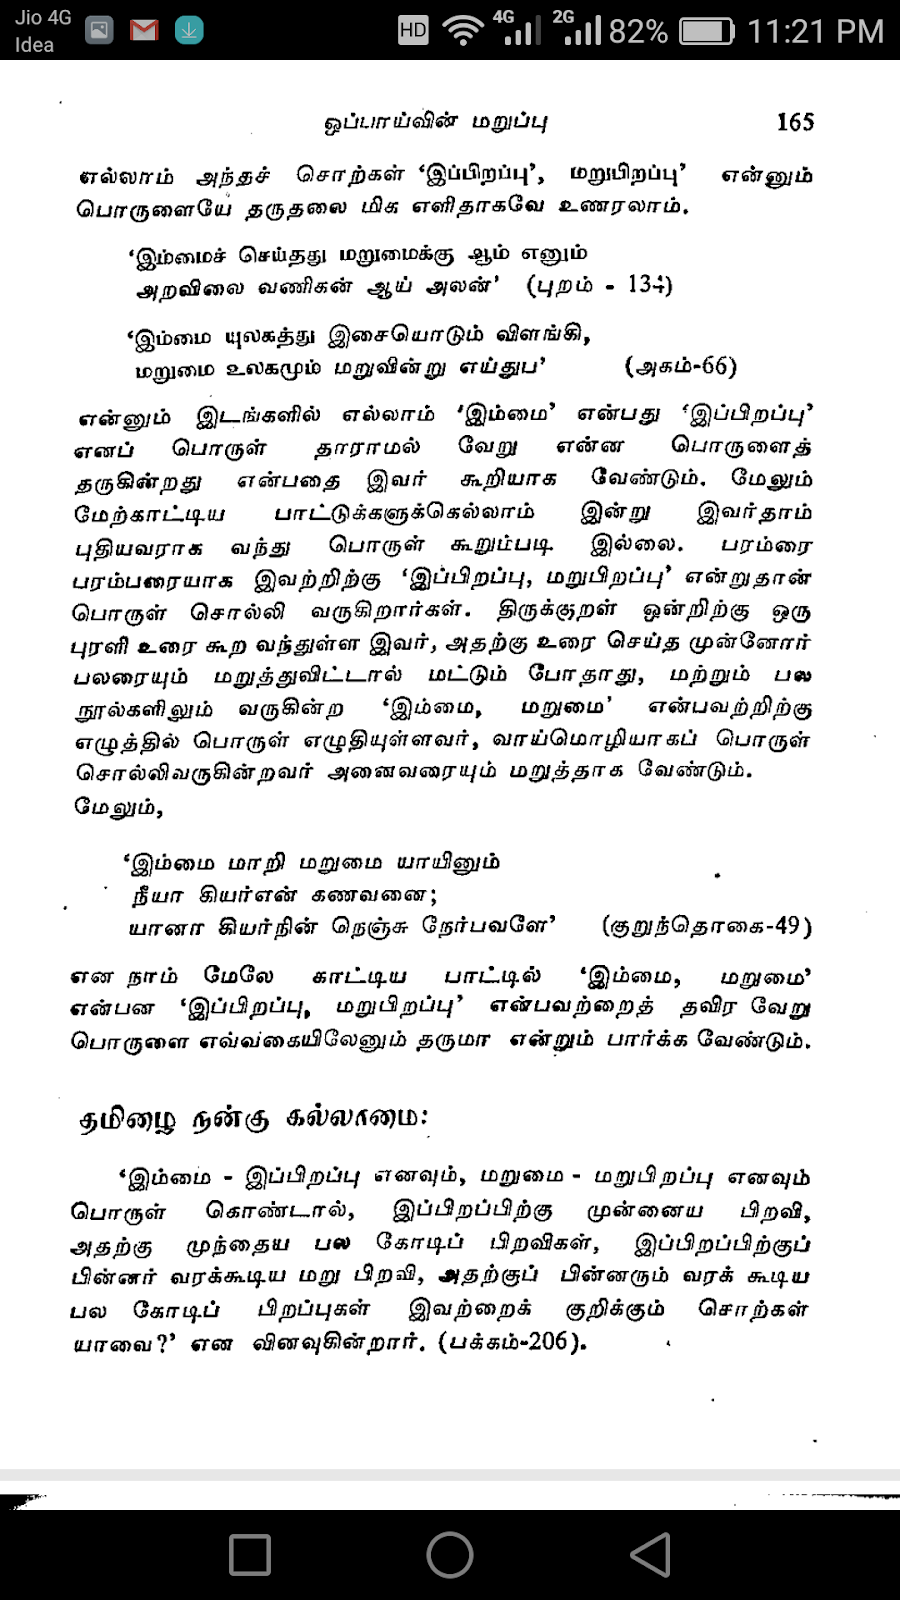 Jio 4G
Idea
HD 4G 2G 82% 11:21 PM
ஒப்பாய்வின் மறுப்பு 165
எல்லாம் அந்தச் சொற்கள் ‘இப்பிறப்பு’, மறுபிறப்பு’ என்னும்
பொருளையே தருதலை மிக எளிதாகவே உணரலாம்.
‘இம்மைச் செய்தது மறுமைக்கு ஆம் எனும்
அறவிலை வணிகன் ஆய் அலன்’ (புறம் - 134)
‘இம்மை யுலகத்து இசையொடும் விளங்கி,
மறுமை உலகமும் மறுவின்று எய்துப’ (அகம்-66)
என்னும் இடங்களில் எல்லாம் ‘இம்மை’ என்பது ‘இப்பிறப்பு’
எனப் பொருள் தாராமல் வேறு என்ன பொருளைத்
தருகின்றது என்பதை இவர் கூறியாக வேண்டும். மேலும்
மேற்காட்டிய பாட்டுக்களுக்கெல்லாம் இன்று இவர்தாம்
புதியவராக வந்து பொருள் கூறும்படி இல்லை. பரம்ரை
பரம்பரையாக இவற்றிற்கு ‘இப்பிறப்பு, மறுபிறப்பு’ என்றுதான்
பொருள் சொல்லி வருகிறார்கள். திருக்குறள் ஒன்றிற்கு ஒரு
புரளி உரை கூற வந்துள்ள இவர், அதற்கு உரை செய்த முன்னோர்
பலரையும் மறுத்துவிட்டால் மட்டும் போதாது, மற்றும் பல
நூல்களிலும் வருகின்ற ‘இம்மை, மறுமை’ என்பவற்றிற்கு
எழுத்தில் பொருள் எழுதியுள்ளவர், வாய்மொழியாகப் பொருள்
சொல்லிவருகின்றவர் அனைவரையும் மறுத்தாக வேண்டும்.
மேலும்,
‘இம்மை மாறி மறுமை யாயினும்
நீயா கியர்என் கணவனை;
யானா கியர்நின் நெஞ்சு நேர்பவளே’ (குறுந்தொகை-49)
என நாம் மேலே காட்டிய பாட்டில் ‘இம்மை, மறுமை’
என்பன ‘இப்பிறப்பு, மறுபிறப்பு’ என்பவற்றைத் தவிர வேறு
பொருளை எவ்வகையிலேனும் தருமா என்றும் பார்க்க வேண்டும்.
தமிழை நன்கு கல்லாமை:
‘இம்மை - இப்பிறப்பு எனவும், மறுமை - மறுபிறப்பு எனவும்
பொருள் கொண்டால், இப்பிறப்பிற்கு முன்னைய பிறவி,
அதற்கு முந்தைய பல கோடிப் பிறவிகள், இப்பிறப்பிற்குப்
பின்னர் வரக்கூடிய மறு பிறவி, அதற்குப் பின்னரும் வரக் கூடிய
பல கோடிப் பிறப்புகள் இவற்றைக் குறிக்கும் சொற்கள்
யாவை?’ என வினவுகின்றார். (பக்கம்-206).